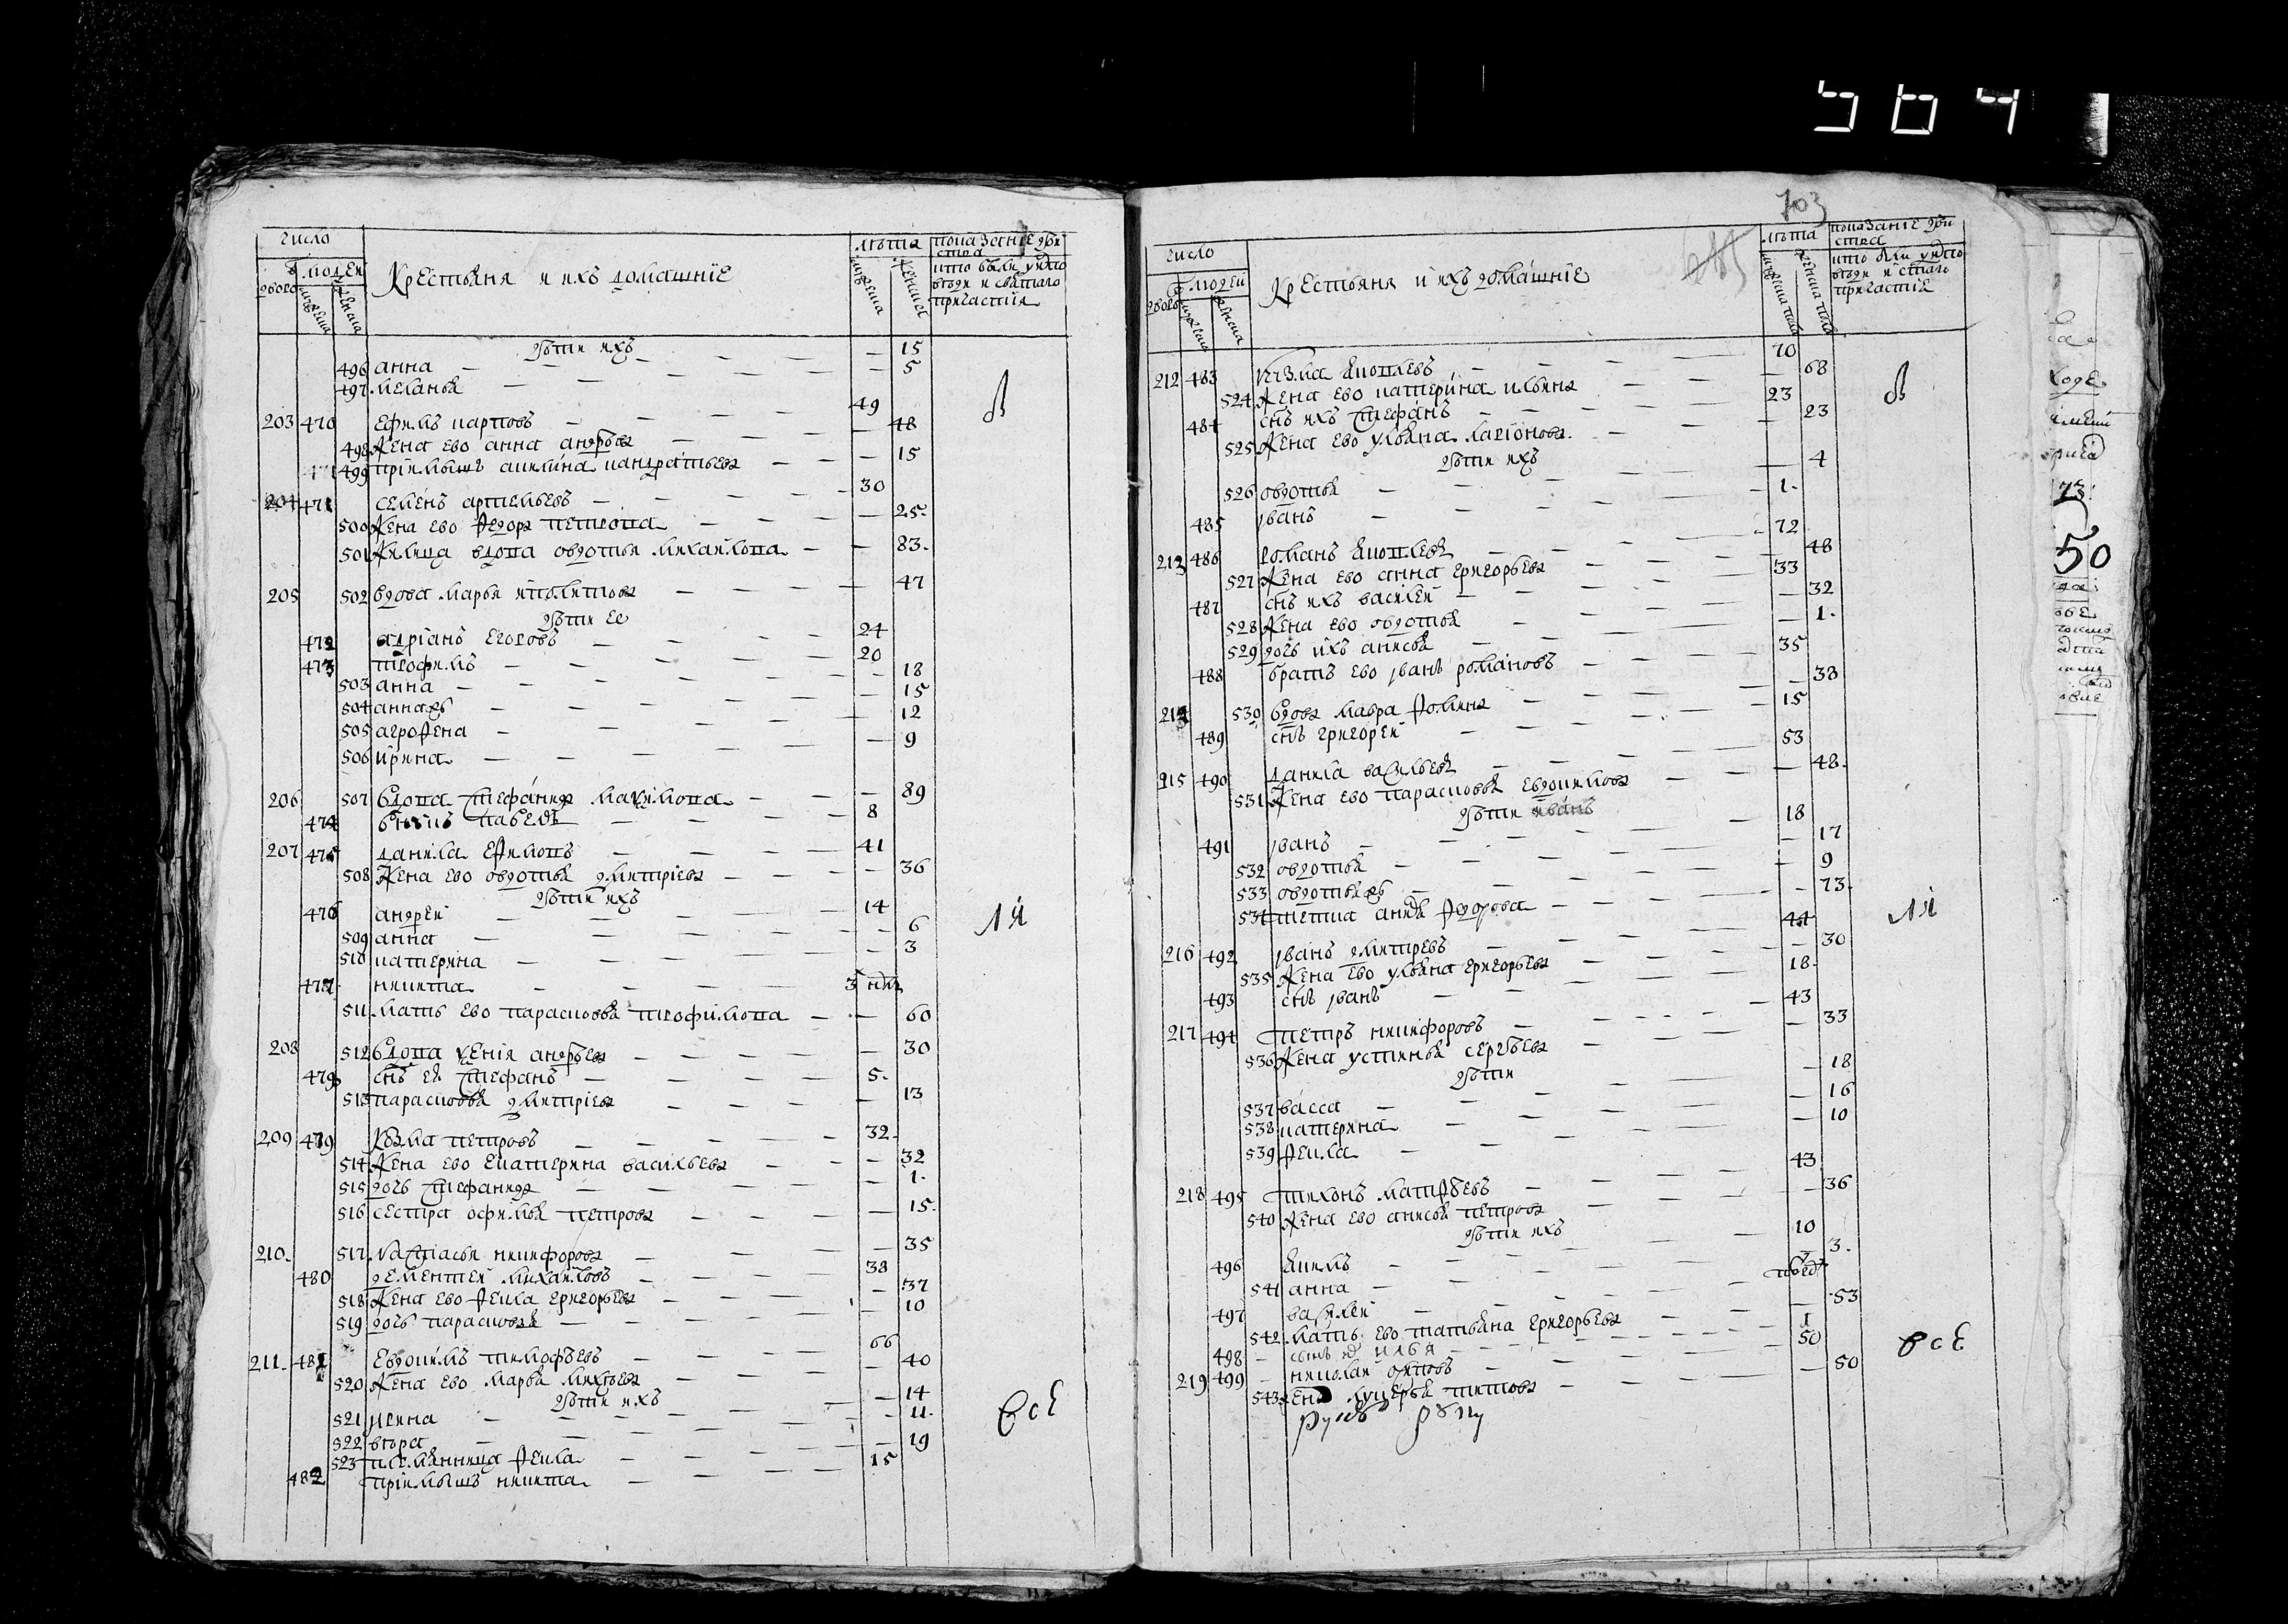 564
число
людей
Крестьяня и ихъ домашнїе
лѣта
показанїе дѣйства
кто были у исповѣди и святаго причастїя
дѣти ихъ
496 анна — 15
497 меланья — 5
203 470 ефимъ карповъ — 49
498 жена ево анна андрѣева — 48
499 прїемышъ акилина панкратьева — 15
204 471 семенъ артемьевъ — 30
500 жена ево федора петрова — 25
501 жилица вдова овдотья михайлова — 83
205 502 вдова марья иполитова — 47
дѣти ее
472 адрїанъ егоровъ — 24
473 трофимъ — 20
503 анна — 18
504 анна жъ — 15
505 агрофена — 12
506 ирина — 9
206 507 вдова стефанида максимова — 89
474 внукъ павелъ — 8
207 475 данила ефимовъ — 41
508 жена ево овдотья дмитрїева — 36
дѣти ихъ
476 андрей — 14
509 анна — 6
510 катерина — 3
477 никита — 3 нд
511 мать ево парасковья трофимова — 60
208 512 вдова ксенїя андрѣева — 30
478 снъ ея стефанъ — 5
513 парасковья дмитрїева — 13
209 479 козма петровъ — 32
514 жена ево екатерина васильева — 32
515 дочь стефанида — 1
516 сестра офимья петрова — 15
210 517 настасья никифорова — 35
480 дементей михайловъ — 38
518 жена ево фекла григорьева — 37
519 дочь парасковья — 10
211 481 евдокимъ тимофѣевъ — 66
520 жена ево марья михѣева — 40
дѣти ихъ
521 — 14
522 — 11
523 племянница фекла — 19
482 прїемышъ никита — 15
всѣ
703
число
людей
Крестьяня и ихъ домашнїе
лѣта
показанїе дѣйства
кто были у исповѣди и стаго причастїя
212 483 козма яковлевъ — 70
524 жена ево катерина ильина — 68
484 снъ ихъ стефанъ — 23
525 жена ево ульяна ларїонова — 23
дѣти ихъ
526 овдотья — 4
485 иванъ — 1
213 486 романъ яковлевъ — 72
527 жена ево анна григорьева — 48
487 снъ ихъ василей — 33
528 жена ево овдотья — 32
529 дочь ихъ анисья — 1
488 братъ ево иванъ романовъ — 35
214 530 вдова мавра фомина — 38
489 снъ григорей — 15
215 490 данила васильевъ — 53
531 жена ево парасковья евдокимова — 48
дѣти
491 иванъ — 18
532 овдотья — 17
533 овдотья жъ — 9
534 тетка анна федорова — 73
216 492 иванъ дмитревъ — 44
535 жена ево ульяна григорьева — 30
493 снъ иванъ — 18
217 494 петръ никифоровъ — 43
536 жена устинья сергѣева — 33
дѣти
537 васса — 18
538 катерина — 16
539 фекла — 10
218 495 тихонъ матфѣевъ — 43
540 жена ево анисья петрова — 36
дѣти ихъ
496 якимъ — 10
541 анна — 3
497 василей
542 мать ево татьяна григорьева — 53
498 илья — 1
219 499 николай — 50
543 жена лукерья титова — 50
всѣ